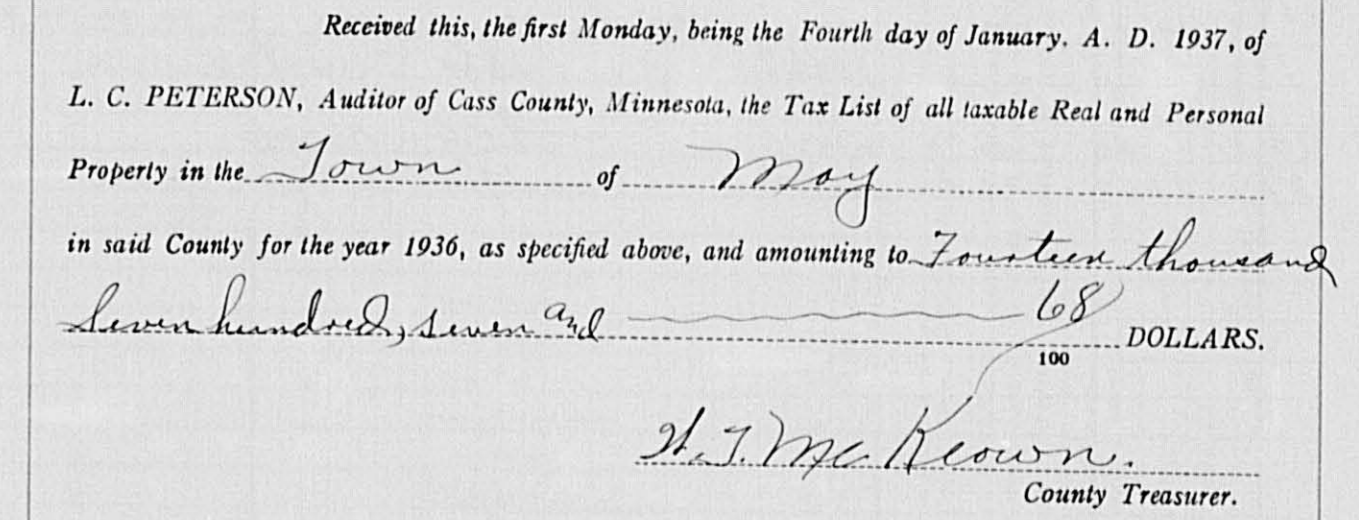 Received this, the first Monday, being the Fourth day of January. A. D. 1937, of
L. C. PETERSON, Auditor of Cass County, Minnesota, the Tax List of all taxable Real and Personal
Property in the Town of May
in said County for the year 1936, as specified above, and amounting to Fourteen thousand
Seven hundred, seven and 68
100 DOLLARS.
W. T. McKeown.
County Treasurer.